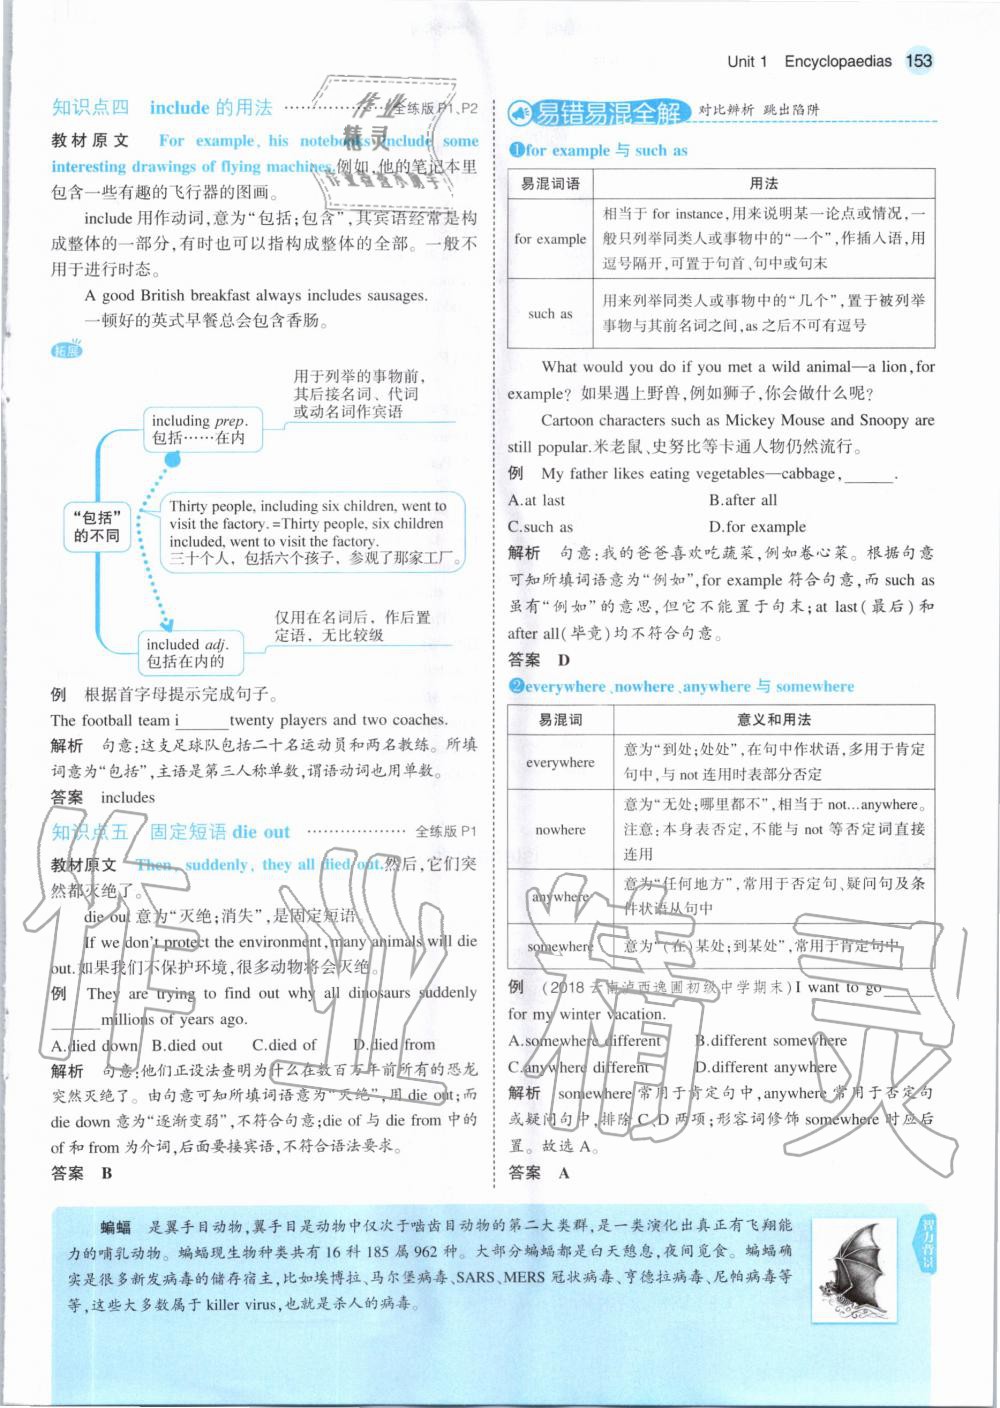 Unit 1 Encyclopaedias 153
知识点四 include 的用法 ………………全练版P1、P2
教材原文 For example, his notebooks include some
interesting drawings of flying machines.例如,他的笔记本里
包含一些有趣的飞行器的图画。
include 用作动词,意为“包括;包含”,其宾语经常是构
成整体的一部分,有时也可以指构成整体的全部。一般不
用于进行时态。
A good British breakfast always includes sausages.
一顿好的英式早餐总会包含香肠。
拓展
用于列举的事物前,
其后接名词、代词
或动名词作宾语
including prep.
包括……在内
“包括”
的不同
Thirty people, including six children, went to
visit the factory. =Thirty people, six children
included, went to visit the factory.
三十个人，包括六个孩子，参观了那家工厂。
仅用在名词后，作后置
定语，无比较级
included adj.
包括在内的
例 根据首字母提示完成句子。
The football team i______twenty players and two coaches.
解析 句意:这支足球队包括二十名运动员和两名教练。所填
词意为“包括”,主语是第三人称单数,谓语动词也用单数。
答案 includes
知识点五 固定短语 die out ………………全练版P1
教材原文 Then, suddenly, they all died out.然后,它们突
然都灭绝了。
die out 意为“灭绝;消失”,是固定短语。
If we don't protect the environment, many animals will die
out.如果我们不保护环境,很多动物将会灭绝。
例 They are trying to find out why all dinosaurs suddenly
______millions of years ago.
A.died down B.died out C.died of D.died from
解析 句意:他们正设法查明为什么在数百万年前所有的恐龙
突然灭绝了。由句意可知所填词语意为“灭绝”,用 die out;而
die down 意为“逐渐变弱”,不符合句意;die of 与 die from 中的
of 和 from 为介词,后面要接宾语,不符合语法要求。
答案 B
易错易混全解 对比辨析 跳出陷阱
❶for example 与 such as
易混词语 用法
for example
相当于 for instance,用来说明某一论点或情况,一
般只列举同类人或事物中的“一个”,作插入语,用
逗号隔开,可置于句首、句中或句末
such as
用来列举同类人或事物中的“几个”,置于被列举
事物与其前名词之间,as 之后不可有逗号
What would you do if you met a wild animal—a lion, for
example? 如果遇上野兽,例如狮子,你会做什么呢?
Cartoon characters such as Mickey Mouse and Snoopy are
still popular.米老鼠、史努比等卡通人物仍然流行。
例 My father likes eating vegetables—cabbage,______.
A.at last B.after all
C.such as D.for example
解析 句意:我的爸爸喜欢吃蔬菜,例如卷心菜。根据句意
可知所填词语意为“例如”,for example 符合句意,而 such as
虽有“例如”的意思,但它不能置于句末;at last(最后)和
after all(毕竟)均不符合句意。
答案 D
❷everywhere、nowhere、anywhere 与 somewhere
易混词 意义和用法
everywhere
意为“到处;处处”,在句中作状语,多用于肯定
句中,与 not 连用时表部分否定
nowhere
意为“无处;哪里都不”,相当于 not...anywhere。
注意:本身表否定,不能与 not 等否定词直接
连用
anywhere
意为“任何地方”,常用于否定句、疑问句及条
件状语从句中
somewhere 意为“(在)某处;到某处”,常用于肯定句中
例 (2018云南泸西逸圃初级中学期末)I want to go______
for my winter vacation.
A.somewhere different B.different somewhere
C.anywhere different D.different anywhere
解析 somewhere 常用于肯定句中,anywhere 常用于否定句
或疑问句中,排除 C、D 两项;形容词修饰 somewhere 时应后
置。故选 A。
答案 A
蝙蝠 是翼手目动物,翼手目是动物中仅次于啮齿目动物的第二大类群,是一类演化出真正有飞翔能
力的哺乳动物。蝙蝠现生物种类共有 16 科 185 属 962 种。大部分蝙蝠都是白天憩息,夜间觅食。蝙蝠确
实是很多新发病毒的储存宿主,比如埃博拉、马尔堡病毒、SARS、MERS 冠状病毒、亨德拉病毒、尼帕病毒等
等,这些大多数属于 killer virus,也就是杀人的病毒。
智力背景
作业
精灵
作业检查小助手
作业精灵